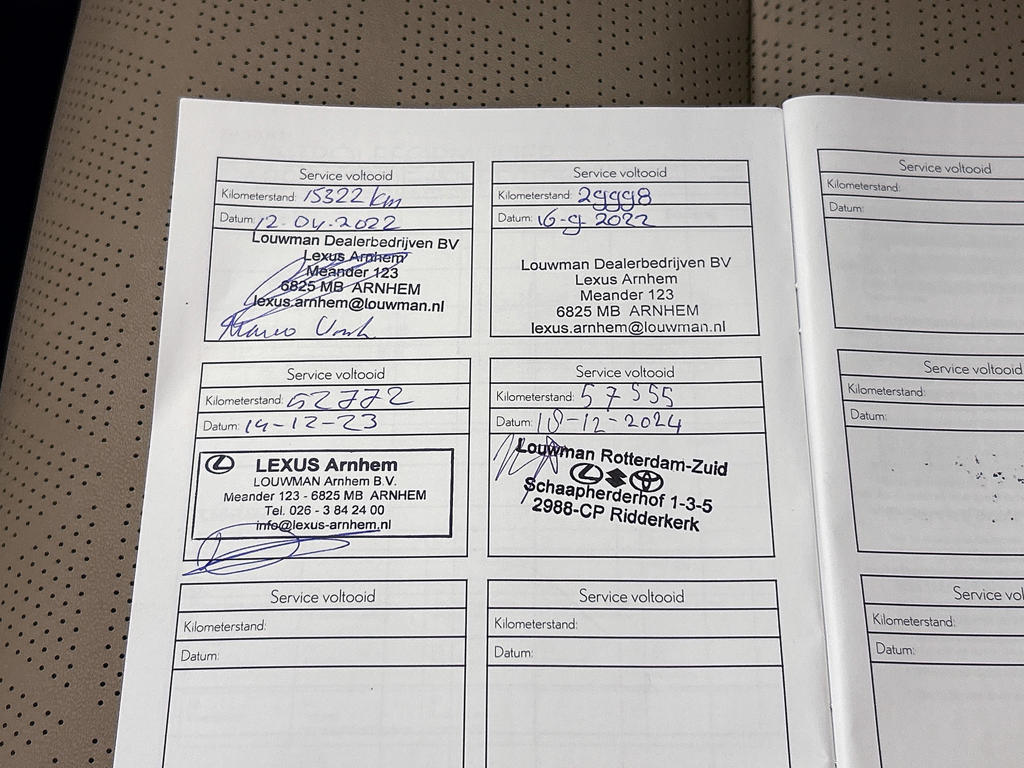 Service voltooid
Kilometerstand: 15322 km
Datum: 12-04-2022
Louwman Dealerbedrijven BV
Lexus Arnhem
Meander 123
6825 MB ARNHEM
lexus.arnhem@louwman.nl
Service voltooid
Kilometerstand: 29998
Datum: 16-9-2022
Louwman Dealerbedrijven BV
Lexus Arnhem
Meander 123
6825 MB ARNHEM
lexus.arnhem@louwman.nl
Service voltooid
Kilometerstand: 52772
Datum: 14-12-23
LEXUS Arnhem
LOUWMAN Arnhem B.V.
Meander 123 - 6825 MB ARNHEM
Tel. 026 - 3 84 24 00
info@lexus-arnhem.nl
Service voltooid
Kilometerstand: 57555
Datum: 18-12-2024
Louwman Rotterdam-Zuid
Schaapherderhof 1-3-5
2988-CP Ridderkerk
Service voltooid
Kilometerstand:
Datum:
Service voltooid
Kilometerstand:
Datum:
Service voltooid
Kilometerstand:
Datum:
Service voltooid
Kilometerstand:
Datum:
Service vol
Kilometerstand:
Datum: